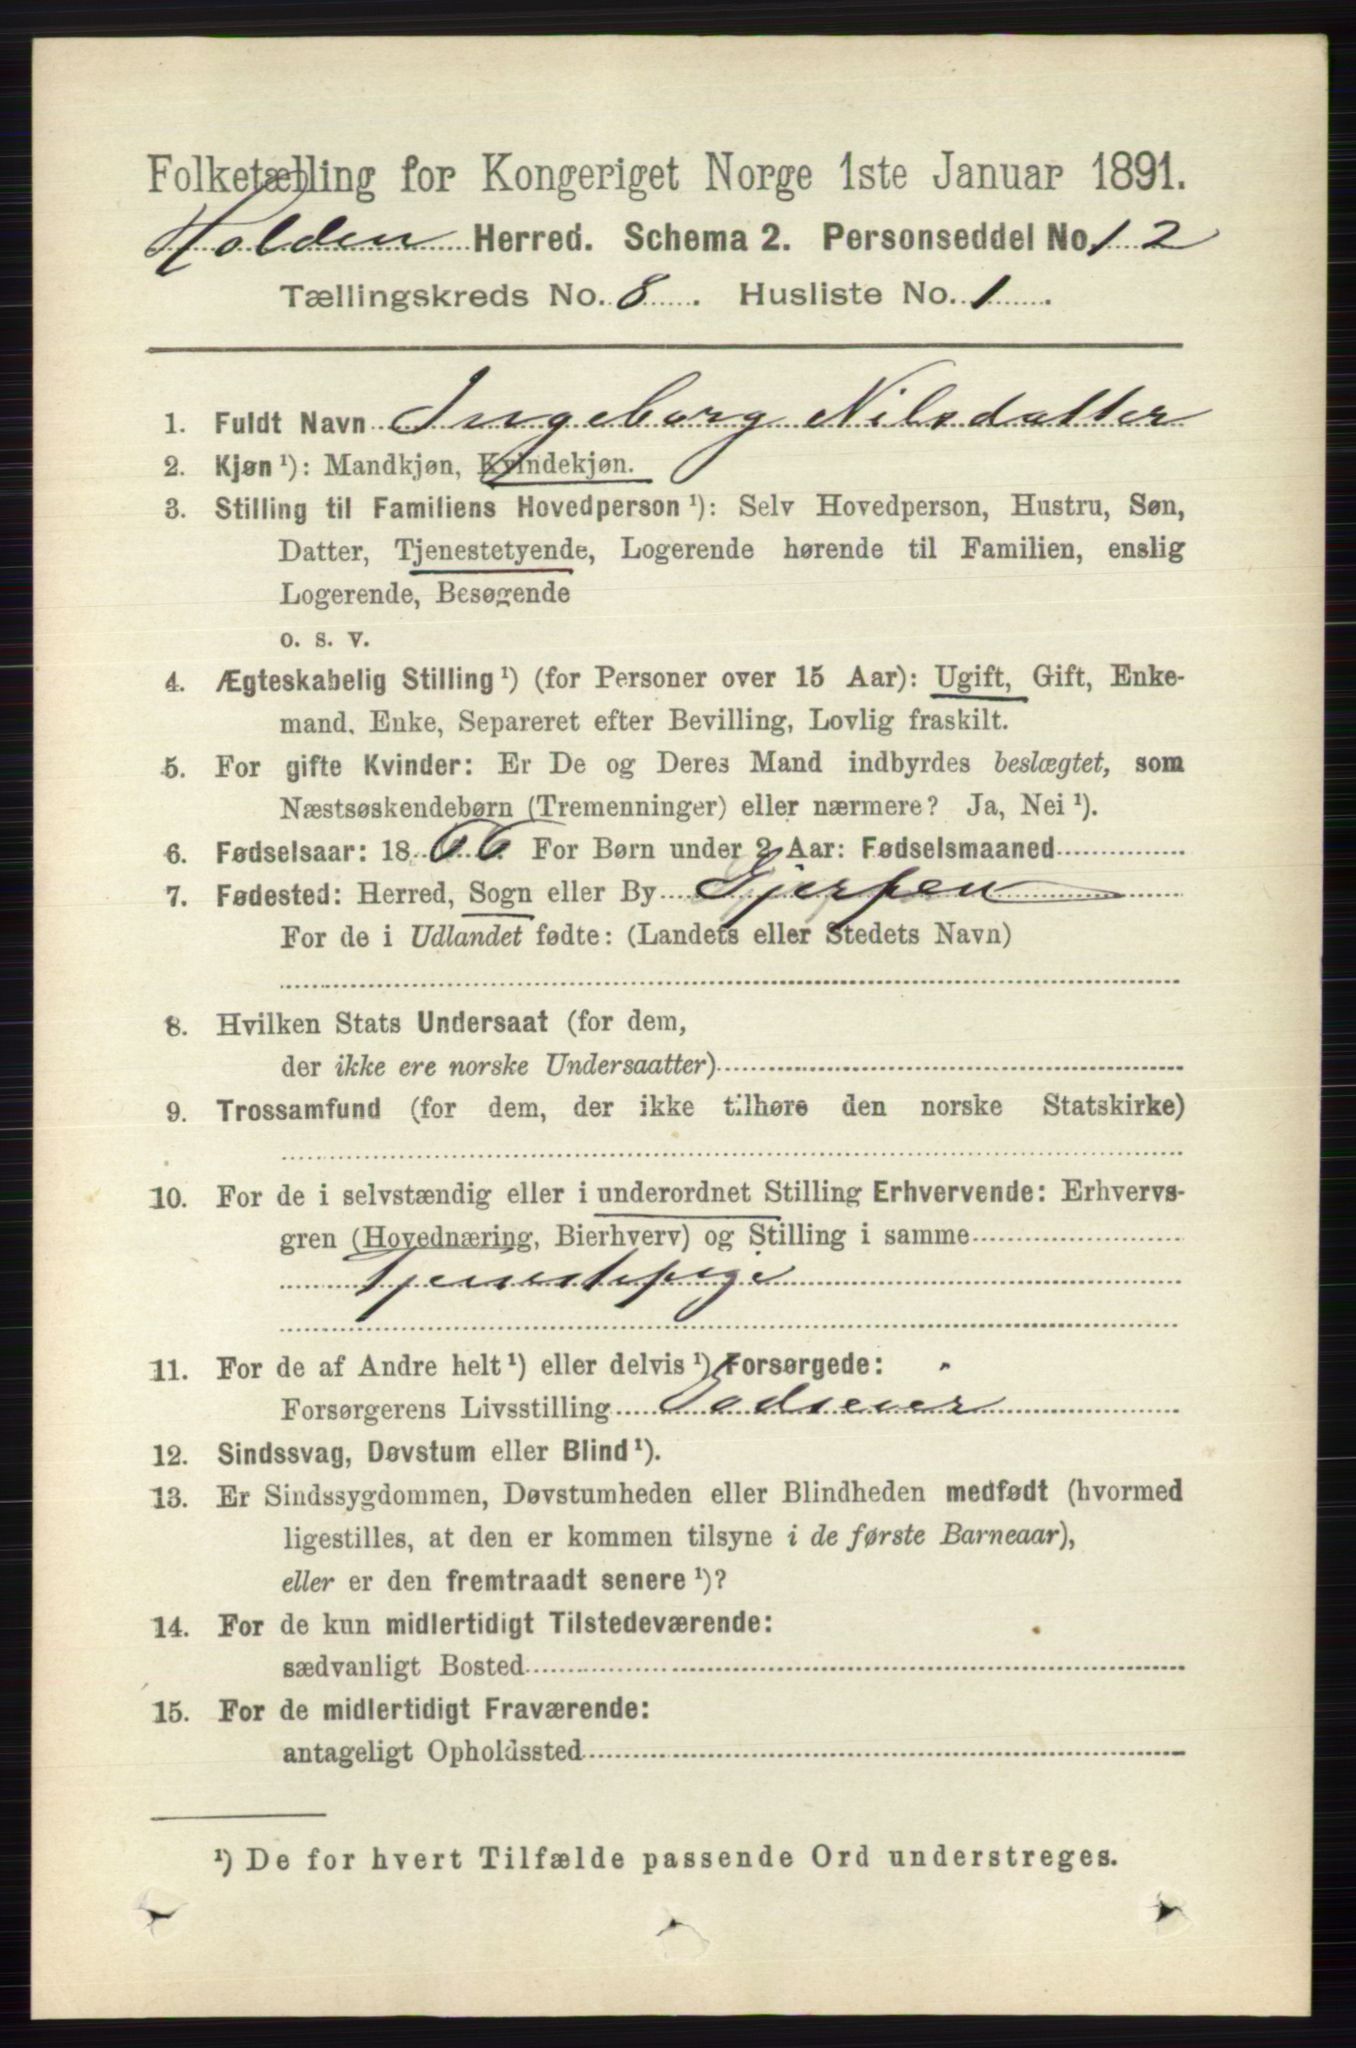 Folketælling for Kongeriget Norge 1ste Januar 1891.
Holden Herred. Schema 2. Personseddel No. 12
Tællingskreds No. 8. Husliste No. 1.
1. Fuldt Navn Ingeborg Nilsdatter
2. Kjøn¹): Mandkjøn, Kvindekjøn.
3. Stilling til Familiens Hovedperson¹): Selv Hovedperson, Hustru, Søn,
Datter, Tjenestetyende, Logerende hørende til Familien, enslig
Logerende, Besøgende
o. s. v.
4. Ægteskabelig Stilling¹) (for Personer over 15 Aar): Ugift, Gift, Enke-
mand, Enke, Separeret efter Bevilling, Lovlig fraskilt.
5. For gifte Kvinder: Er De og Deres Mand indbyrdes beslægtet, som
Næstsøskendebørn (Tremenninger) eller nærmere? Ja, Nei¹).
6. Fødselsaar: 1866 For Børn under 2 Aar: Fødselsmaaned
7. Fødested: Herred, Sogn eller By Gjerpen
For de i Udlandet fødte: (Landets eller Stedets Navn)
8. Hvilken Stats Undersaat (for dem,
der ikke ere norske Undersaatter)
9. Trossamfund (for dem, der ikke tilhøre den norske Statskirke)
10. For de i selvstændig eller i underordnet Stilling Erhvervende: Erhvervs-
gren (Hovednæring, Bierhverv) og Stilling i samme
Tjenestepige
11. For de af Andre helt¹) eller delvis¹) Forsørgede:
Forsørgerens Livsstilling Godseier
12. Sindssvag, Døvstum eller Blind¹).
13. Er Sindssygdommen, Døvstumheden eller Blindheden medfødt (hvormed
ligestilles, at den er kommen tilsyne i de første Barneaar),
eller er den fremtraadt senere¹)?
14. For de kun midlertidigt Tilstedeværende:
sædvanligt Bosted
15. For de midlertidigt Fraværende:
antageligt Opholdssted
¹) De for hvert Tilfælde passende Ord understreges.